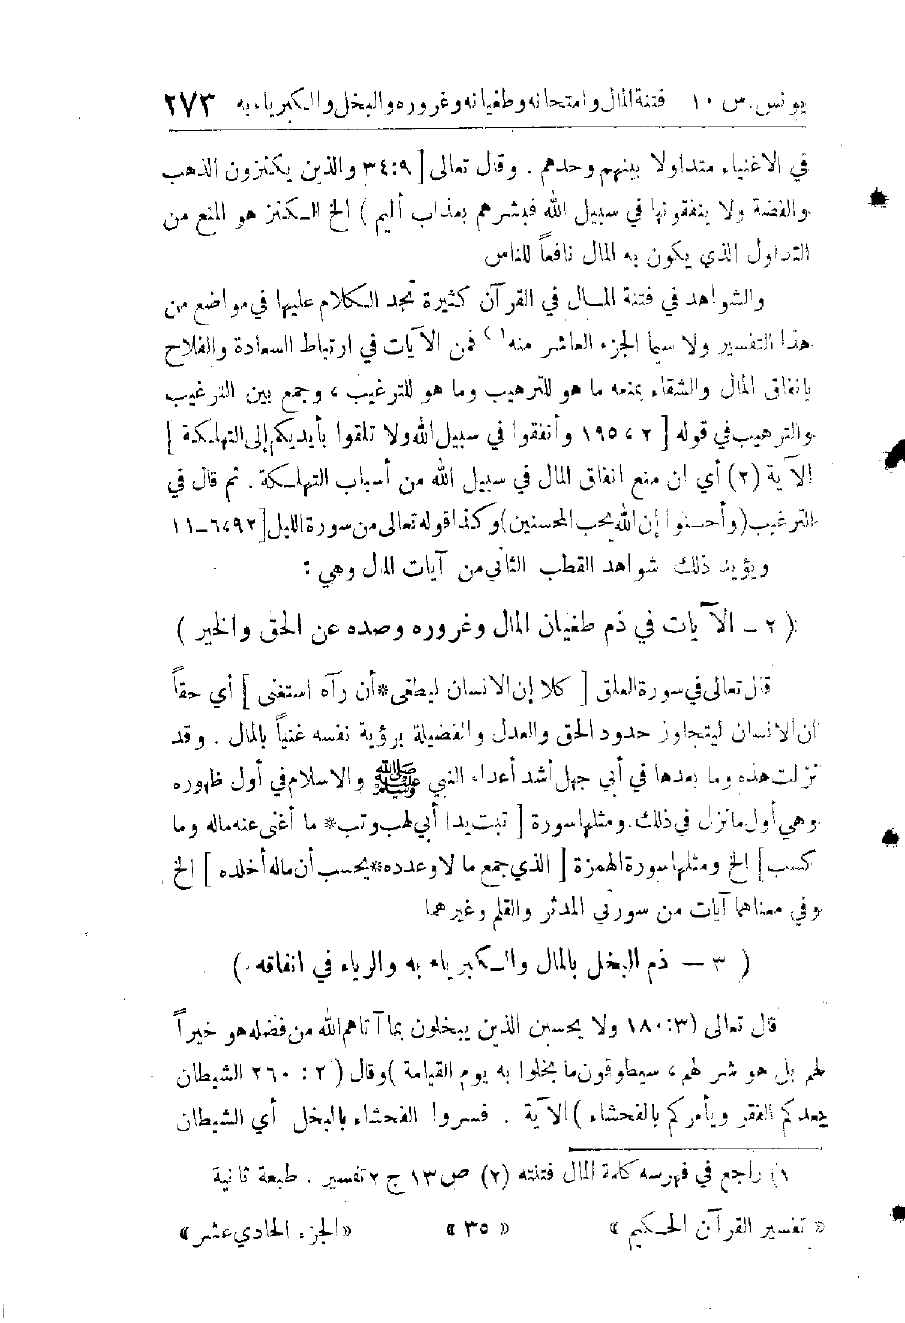 يونس. س ١٠ فتنة المال وامتحانه وطغيانه وغروره والبخل والكبرياء به ٢٧٣
في الاغنياء متداولا بينهم وحدهم . وقال تعالى [ ٣٤:٩ والذين يكنزون الذهب
والفضة ولا ينفقونها في سبيل الله فبشرهم بعذاب أليم ) الخ الكنز هو المنع من
التداول الذي يكون به المال نافعاً للناس
والشواهد في فتنة المال في القرآن كثيرة تجد الكلام عليها في مواضع من
هذا التفسير ولا سيما الجزء العاشر منه (١) فمن الآيات في ارتباط السعادة والفلاح
بانفاق المال والشقاء بمنعه ما هو للترهيب وما هو للترغيب ، وجمع بين الترغيب
والترهيب في قوله [ ٢ ، ١٩٥ وأنفقوا في سبيل الله ولا تلقوا بأيديكم إلى التهلكة ]
الآية (٢) أي ان منع انفاق المال في سبيل الله من أسباب التهلكة . ثم قال في
الترغيب (وأحسنوا إن الله يحب المحسنين) وكذا قوله تعالى من سورة الليل [٩٢، ٦-١١
ويؤيد ذلك شواهد القطب الثاني من آيات المال وهي :
( ٢ – الآيات في ذم طغيان المال وغروره وصده عن الحق والخير )
قال تعالى في سورة العلق [ كلا إن الانسان ليطغى * أن رآه استغنى ] أي حقاً
ان الانسان ليتجاوز حدود الحق والعدل والفضيلة برؤية نفسه غنياً بالمال . وقد
نزلت هذه وما بعدها في أبي جهل أشد أعداء النبي ﷺ والاسلام في أول ظهوره
وهي أول ما نزل في ذلك. ومثلها سورة [ تبت يدا أبي لهب وتب * ما أغنى عنه ماله وما
كسب ] الخ ومثلها سورة الهمزة [ الذي جمع مالا وعدده * يحسب أن ماله أخلده ] الخ
وفي معناهما آيات من سورتي المدثر والقلم وغيرهما
( ٣ – ذم البخل بالمال والكبرياء به والرياء في انفاقه )
قال تعالى (٣: ١٨٠ ولا يحسبن الذين يبخلون بما آتاهم الله من فضله هو خيراً
لهم بل هو شر لهم ، سيطوقون ما بخلوا به يوم القيامة ) وقال ( ٢ : ٢٦٠ الشيطان
يعدكم الفقر ويأمركم بالفحشاء ) الآية . فسروا الفحشاء بالبخل أي الشيطان
١) راجع في فهرسه كلمة المال فتنته (٢) ص ١٣ ج ٢ تفسير . طبعة ثانية
« تفسير القرآن الحكيم » « ٣٥ » «الجزء الحادي عشر»